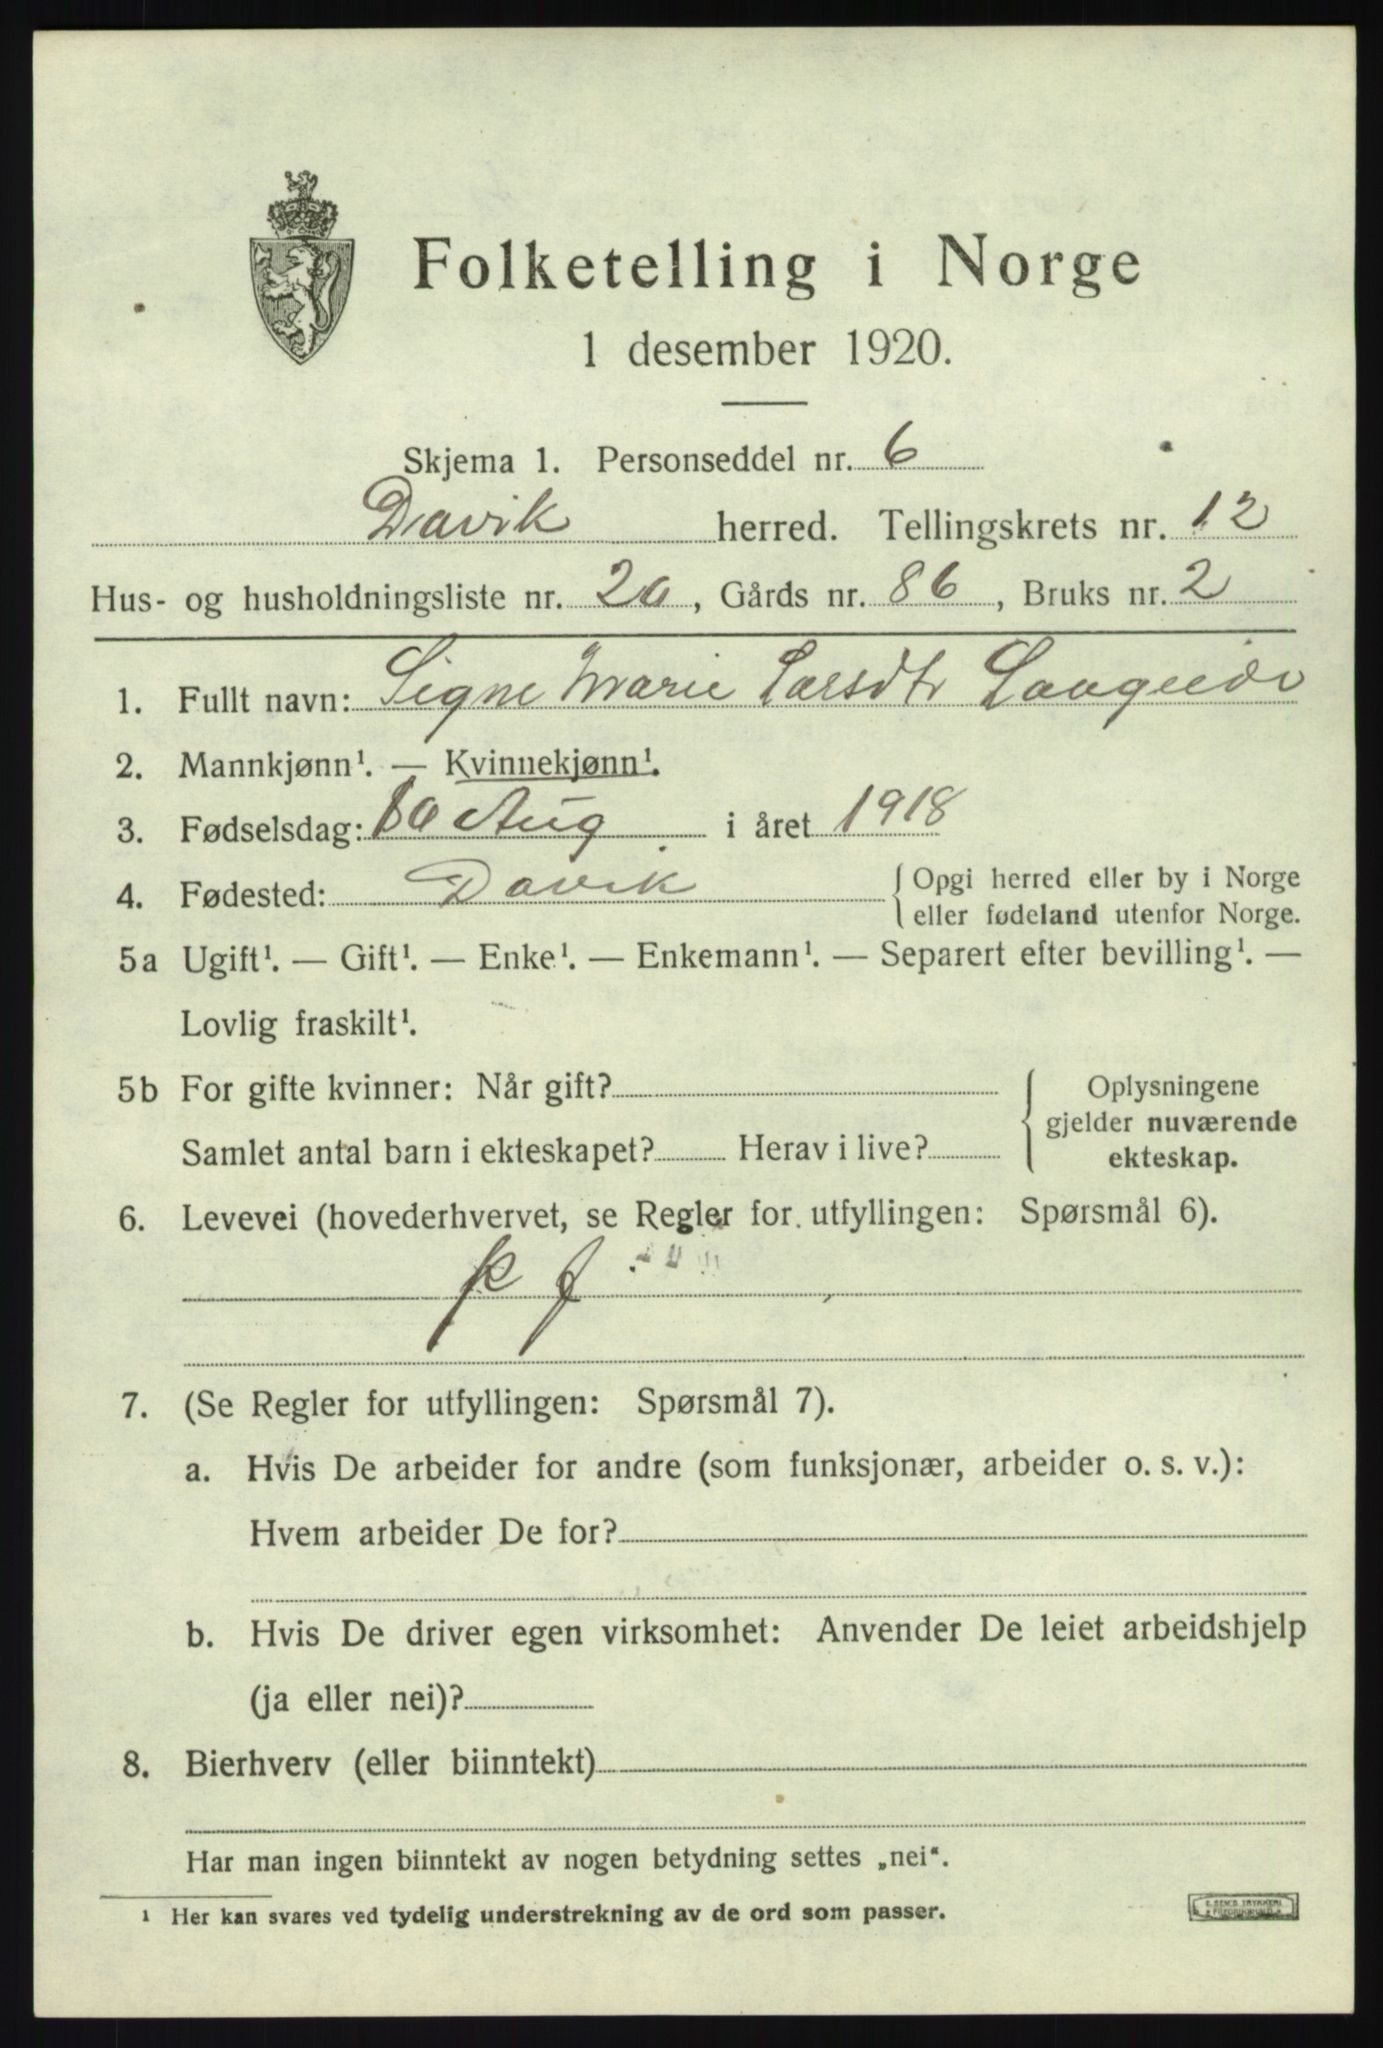 Folketelling i Norge
1 desember 1920.
Skjema 1. Personseddel nr. 6
Davik herred. Tellingskrets nr. 12
Hus- og husholdningsliste nr. 20, Gårds nr. 86, Bruks nr. 2
1. Fullt navn: Signe Marie Larsdtr
2. Mannkjønn¹. — Kvinnekjønn¹.
3. Fødselsdag: 10 Aug i året 1918
4. Fødested: Davik { Opgi herred eller by i Norge
eller fødeland utenfor Norge.
5a Ugift¹. — Gift¹. — Enke¹. — Enkemann¹. — Separert efter bevilling¹. —
Lovlig fraskilt¹.
5b For gifte kvinner: Når gift? { Oplysningene
gjelder nuværende
Samlet antal barn i ekteskapet? Herav i live?
ekteskap.
6. Levevei (hovederhvervet, se Regler for utfyllingen: Spørsmål 6).
7. (Se Regler for utfyllingen: Spørsmål 7).
a. Hvis De arbeider for andre (som funksjonær, arbeider o. s. v.):
Hvem arbeider De for?
b. Hvis De driver egen virksomhet: Anvender De leiet arbeidshjelp
(ja eller nei)?
8. Bierhverv (eller biinntekt)
Har man ingen biinntekt av nogen betydning settes „nei".
¹ Her kan svares ved tydelig understrekning av de ord som passer.